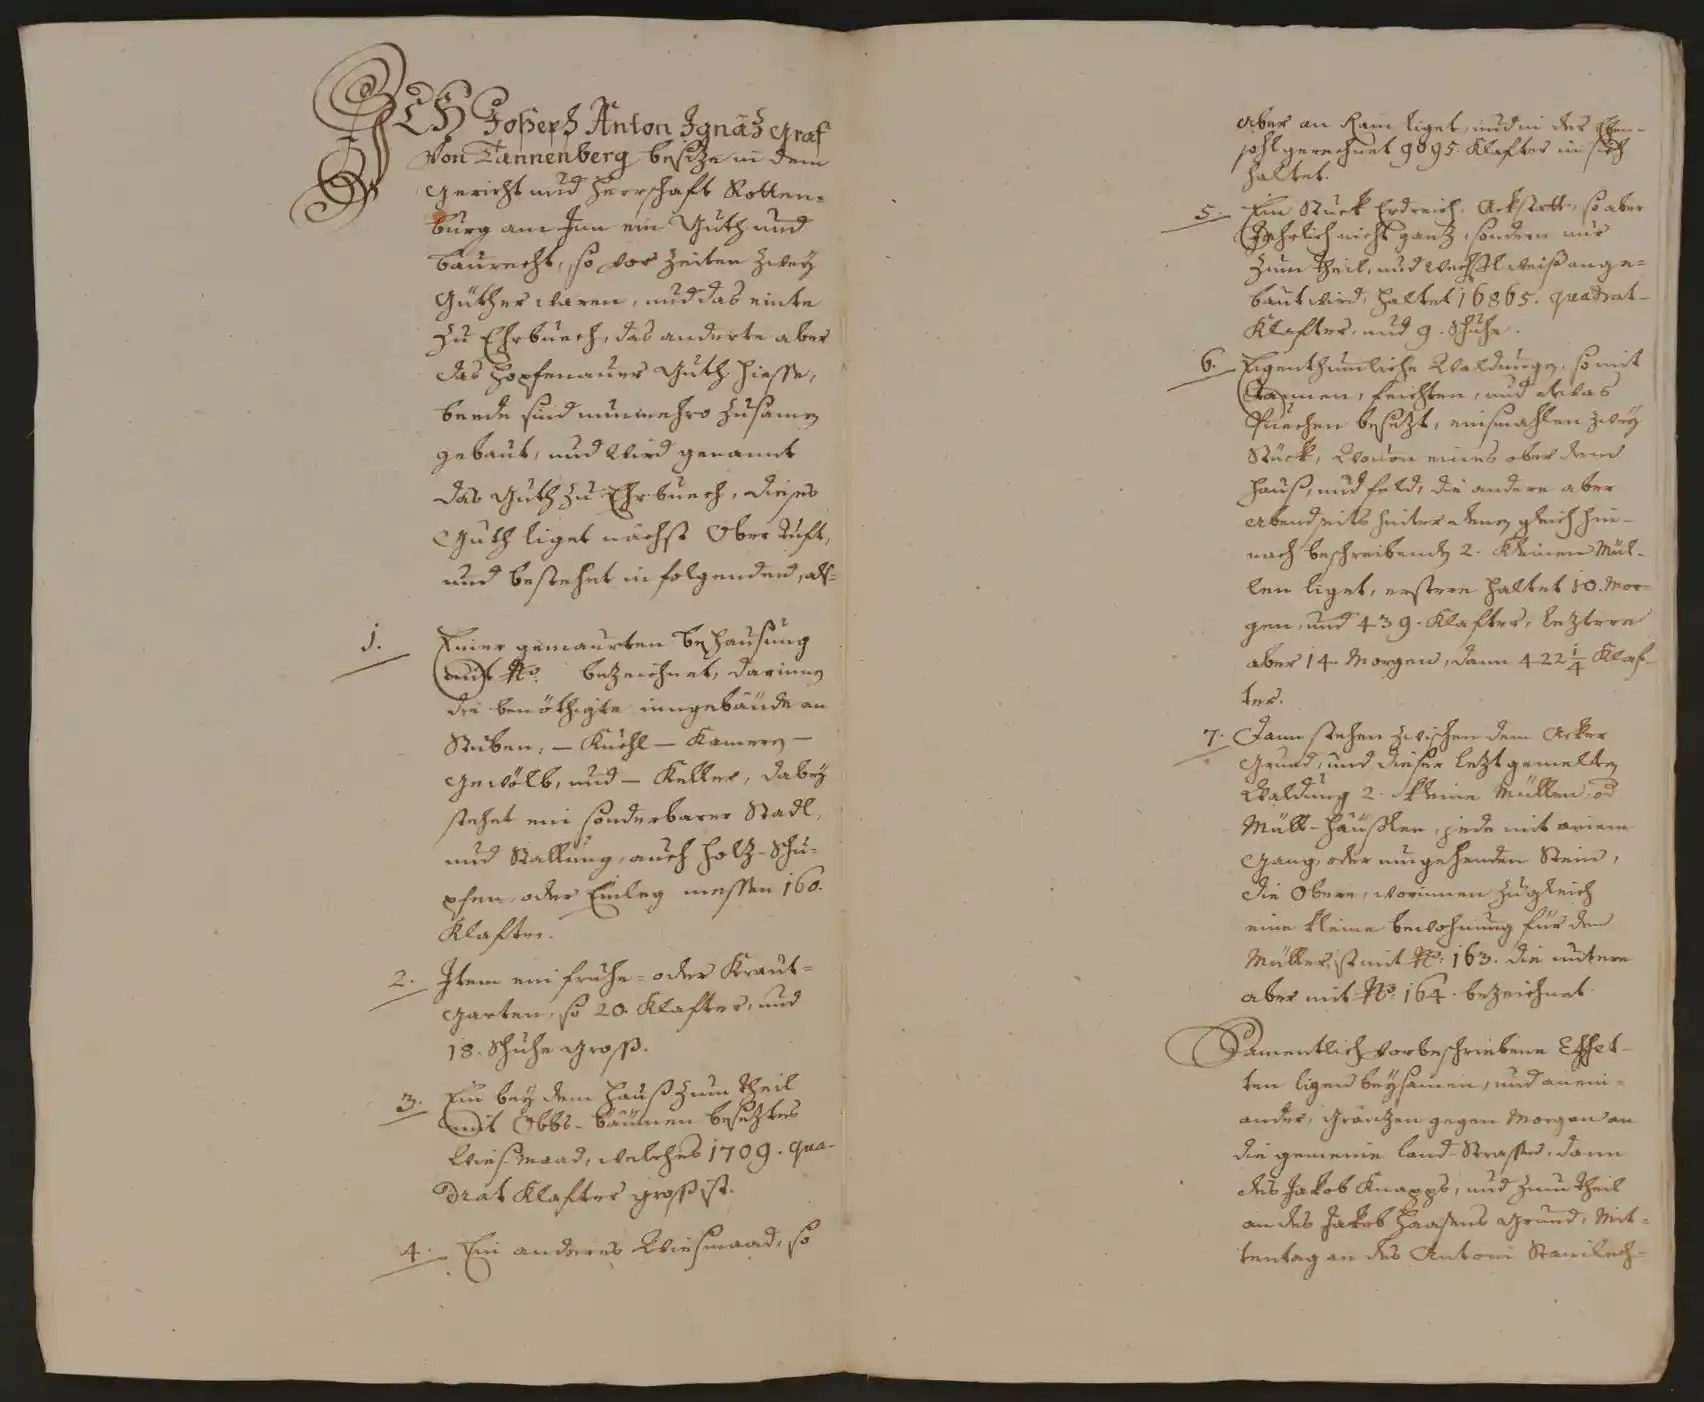 ICH Joseph Anton Ignätz Graf
von Tannenberg besitze in dem
Gericht und Herrschaft Rotten-
burg am Inn ein Guth und
baurecht, so vor Zeiten zwey
Güther waren, und das einte
zu Ehrbuech, das anderte aber
das Hopfenauer Guth hiesse,
beede sind nunmehro zusamen
gebaut, und wird genannt
das Guth zu Ehrbuech, dieses
Guth liget nächst Ober
und bestehet in folgenden, als-
1. Einer gemaurten behausung
mit No. bezeichnet, darinen
die benöthigte inngebäude an
Stuben, – Kuchl – Kamern –
Gewölb, und – Keller, dabey
stehet ein sonderbarer Stadl,
und Stallung, auch Holz-Schu-
pfen, oder Einleg messen 160.
Klafter.
2. Item ein fruhe- oder Kraut-
garten, so 20. Klafter, und
18. Schuhe groß.
3. Ein bey dem Hauß zum theil
mit Obbs-bäumen besetztes
Wiesmaad, welches 1709. qua-
drat Klafter groß ist.
4. Ein anderes Wiesmaad, so
aber an Rain liget, und in der Eben-
sohl gerechnet 9895. Klafter in sich
haltet.
5. Ein Stuck Erdreich, Ackstatt, so aber
Jährlich nicht gantz, sondern nur
zum theil, und wechslweiß ange-
baut wird, haltet 16865. quadrat-
Klafter, und 9. Schuhe.
6. Eigenthumliche Waldungen, so mit
Tannen, feichten, und etwas
Puechen besetzt, einsmahlen zwey
Stück, wovon eines ober dem
Hauß, und feld, die andere aber
abendseits hinter denen gleich hin-
nach beschreibenden 2. kleinen Mül-
len liget, erstere haltet 10. Mor-
gen, und 439. Klafter, letztere
aber 14 Morgen, dann 422 1/4 Klaf-
ter.
7. Dann stehen zwischen dem Acker
Grund, und dieser letzt gemelten
Waldung 2. kleine Müllen od
Müll-häußlen, jede mit einem
Gang, oder umgehenden Stein,
die Obere, worinnen zugleich
eine kleine bewohnung für den
Müller, ist mit No. 163. die untere
aber mit No. 164. bezeichnet.
Samentlich vorbeschriebene Effec-
ten ligen beysamen, und anein-
ander, Gränzen gegen Morgen an
die gemeine Land-Strassen, dann
des Jakob Knapps, und zum theil
an des Jakob Haasens Grund, Mit-
tentag an des Antoni Stanlech-